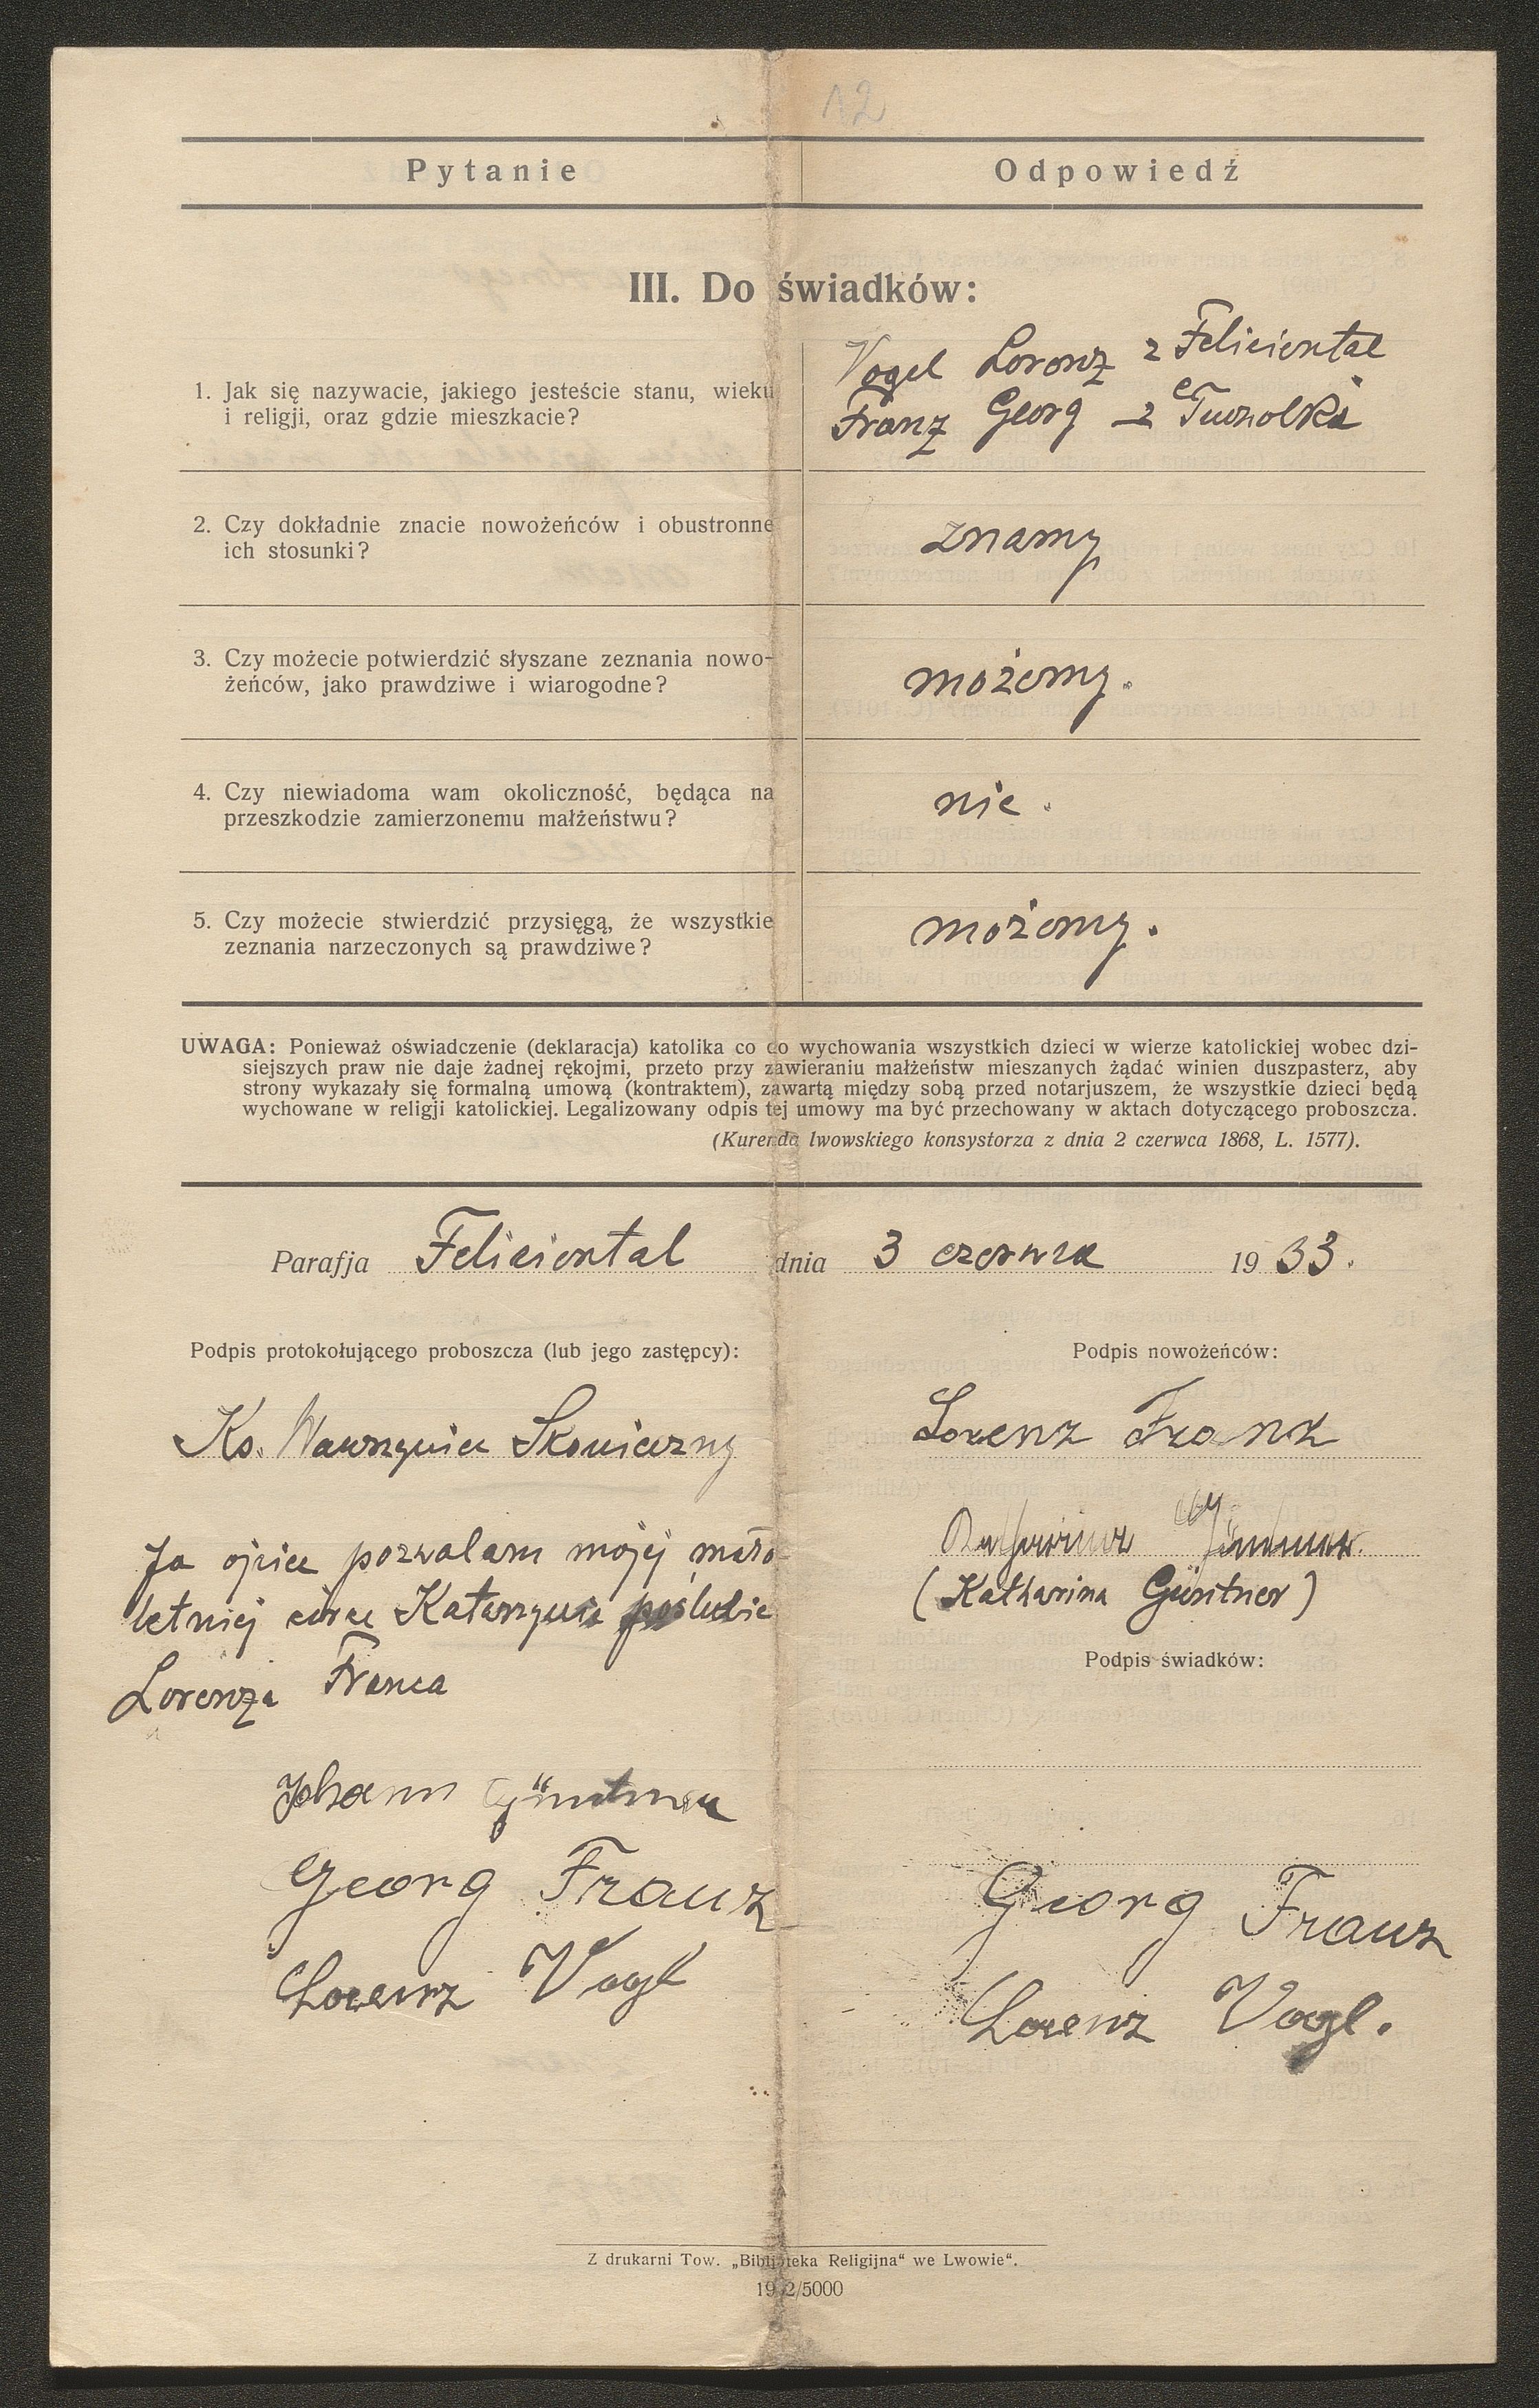 12
Pytanie Odpowiedź
III. Do świadków:
1. Jak się nazywacie, jakiego jesteście stanu, wieku
i religji, oraz gdzie mieszkacie?
Vogel Lorenz z Feliciental
Franz Georg z
2. Czy dokładnie znacie nowożeńców i obustronne
ich stosunki?
znamy
3. Czy możecie potwierdzić słyszane zeznania nowo-
żeńców, jako prawdziwe i wiarogodne?
możemy.
4. Czy niewiadoma wam okoliczność, będąca na
przeszkodzie zamierzonemu małżeństwu?
nie.
5. Czy możecie stwierdzić przysięgą, że wszystkie
zeznania narzeczonych są prawdziwe?
możemy.
UWAGA: Ponieważ oświadczenie (deklaracja) katolika co do wychowania wszystkich dzieci w wierze katolickiej wobec dzi-
siejszych praw nie daje żadnej rękojmi, przeto przy zawieraniu małżeństw mieszanych żądać winien duszpasterz, aby
strony wykazały się formalną umową (kontraktem), zawartą między sobą przed notarjuszem, że wszystkie dzieci będą
wychowane w religji katolickiej. Legalizowany odpis tej umowy ma być przechowany w aktach dotyczącego proboszcza.
(Kurenda lwowskiego konsystorza z dnia 2 czerwca 1868, L. 1577).
Parafja Feliciental dnia 3 czerwca 1933.
Podpis protokołującego proboszcza (lub jego zastępcy):
Ks. Wawrzyniec Skowieczny
Ja ojciec pozwalam mojej mało-
letniej córce Katarzynie poślubić
Lorenza Franca
Johann Güntner
Georg Franz
Lorenz Vogl
Podpis nowożeńców:
Lorenz Franz
(Katharina Güntner)
Podpis świadków:
Georg Franz
Lorenz Vogl.
Z drukarni Tow. „Biblijoteka Religijna“ we Lwowie“.
1932/5000